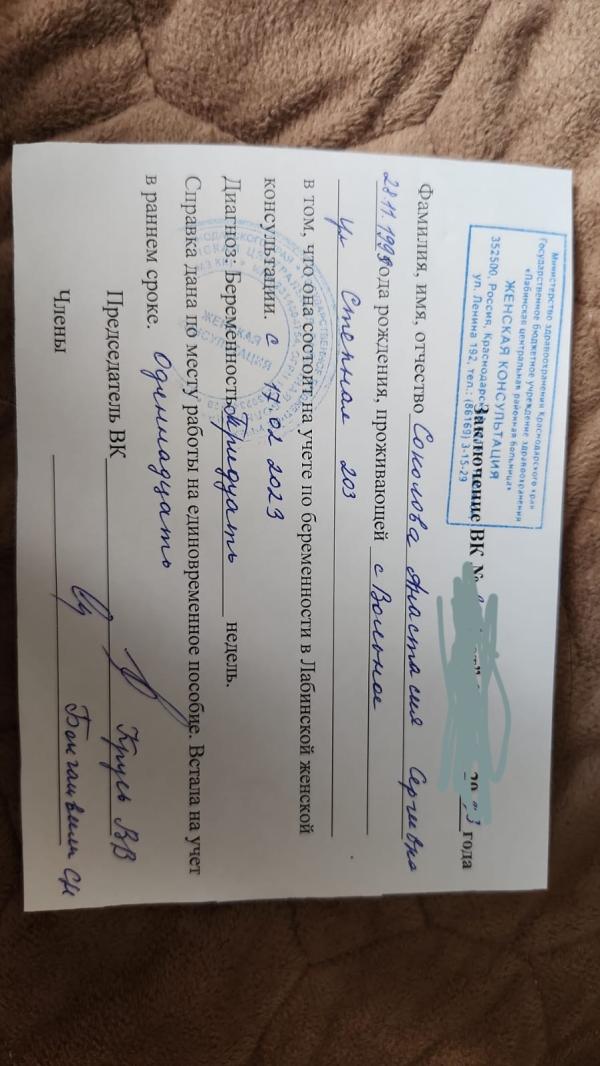 Министерство здравоохранения Краснодарского края
Государственное бюджетное учреждение здравоохранения
«Лабинская центральная районная больница»
ЖЕНСКАЯ КОНСУЛЬТАЦИЯ
352500, Россия, Краснодарс
ул. Ленина 192, тел.: (86169) 3-15-29
Заключение ВК № 2023 года
Фамилия, имя, отчество Соколова Анастасия Сергевна
28.11.199 ода рождения, проживающей с Вольное
ул Степная 203
в том, что она состоит на учете по беременности в Лабинской женской
консультации. с 17.02 2023
Диагноз: Беременность Тридцать недель.
Справка дана по месту работы на единовременное пособие. Встала на учет
в раннем сроке. Одиннадцать
Председатель ВК Круль ВВ
Члены
ЖЕНСКАЯ
КОНСУЛЬТАЦИЯ